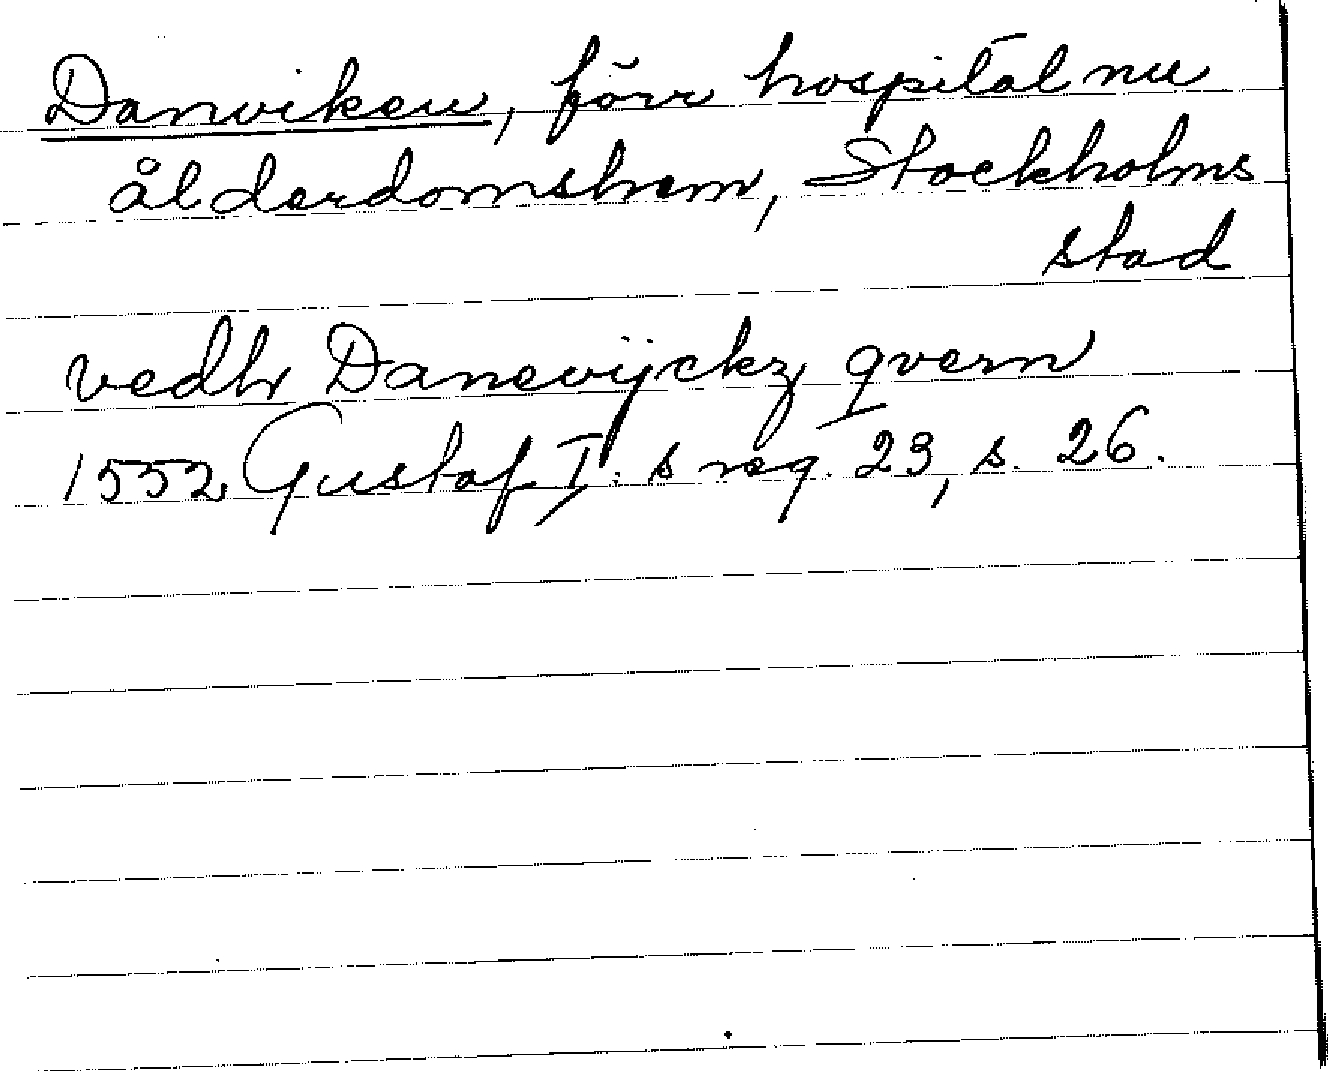 Danviken, förr hospital nu
ålderdomshem, Stockholms
stad
vedh Danewijckz qvern
1552 Gustaf I:s reg. 23, s. 26.